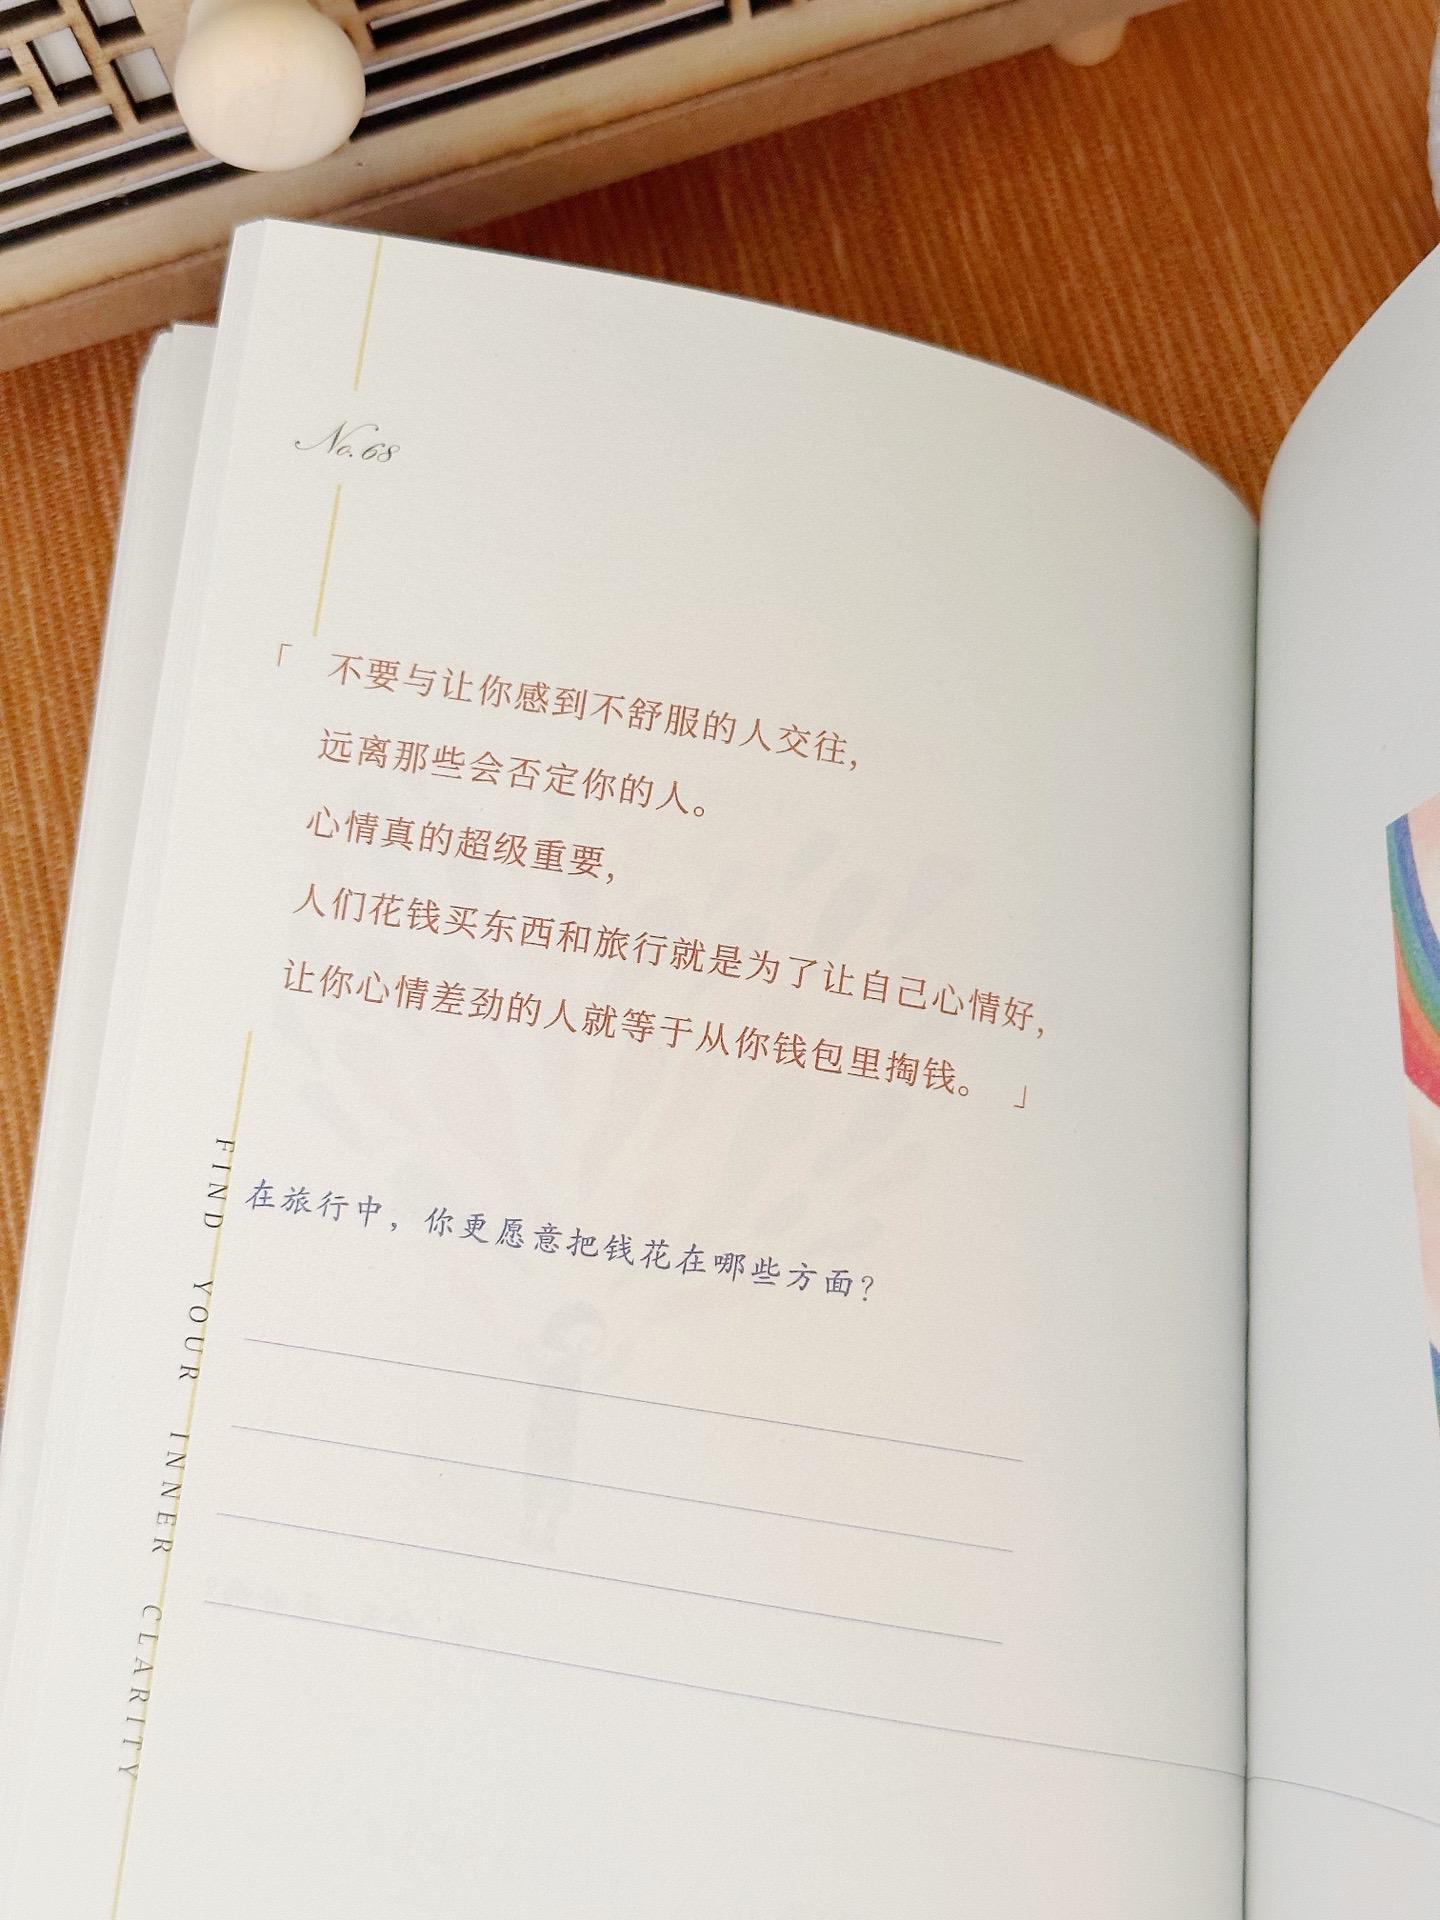 No.68
「 不要与让你感到不舒服的人交往，
远离那些会否定你的人。
心情真的超级重要，
人们花钱买东西和旅行就是为了让自己心情好，
让你心情差劲的人就等于从你钱包里掏钱。 」
在旅行中，你更愿意把钱花在哪些方面？
FIND YOUR INNER CLARITY